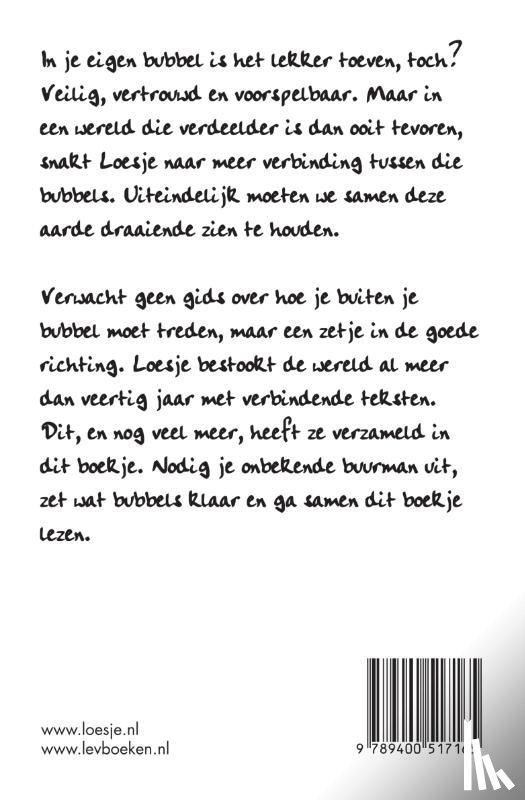 In je eigen bubbel is het lekker toeven, toch?
Veilig, vertrouwd en voorspelbaar. Maar in
een wereld die verdeelder is dan ooit tevoren,
snakt Loesje naar meer verbinding tussen die
bubbels. Uiteindelijk moeten we samen deze
aarde draaiende zien te houden.
Verwacht geen gids over hoe je buiten je
bubbel moet treden, maar een zetje in de goede
richting. Loesje bestookt de wereld al meer
dan veertig jaar met verbindende teksten.
Dit, en nog veel meer, heeft ze verzameld in
dit boekje. Nodig je onbekende buurman uit,
zet wat bubbels klaar en ga samen dit boekje
lezen.
www.loesje.nl
www.levboeken.nl
9 789400 5171